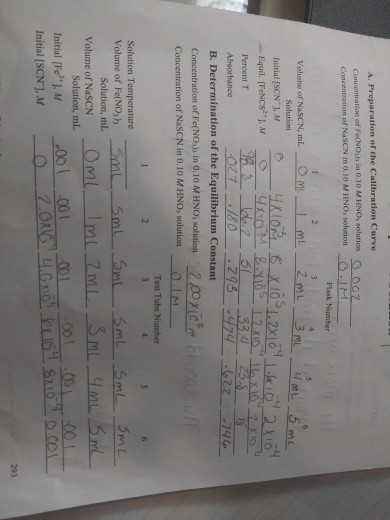 A. Preparation of the Calibration Curve
Concentration of Fe(NO₃)₃ in 0.10 M HNO₃ solution 0.002
Concentration of NaSCN in 0.10 M HNO₃ solution 0.1M
Flask Number
1 2 3 4 5 6
Volume of NaSCN, mL 0 mL 1 mL 2 mL 3 mL 4 mL 5 mL
Solution
Initial [SCN⁻], M 0 4X10⁻⁵ 8 X10⁻⁵ 1.2X10⁻⁴ 1.6x10⁻⁴ 2 x10⁻⁴
Equil. [FeNCS²⁺], M 0 4X10⁻⁵ 8 X10⁻⁵ 1.2X10⁻⁴ 1.6 x 10⁻⁴ 2 x 10⁻⁴
Percent T 51 18
Absorbance .027 .180 .293 .474 .622 .746
B. Determination of the Equilibrium Constant
Concentration of Fe(NO₃)₃ in 0.10 M HNO₃ solution 2.00X10⁻³ M
Concentration of NaSCN in 0.10 M HNO₃ solution 0.1M
Test Tube Number
1 2 3 4 5 6
Solution Temperature
Volume of Fe(NO₃)₃ 5mL 5mL 5mL 5mL 5mL 5mL
Solution, mL
Volume of NaSCN 0mL 1mL 2mL 3mL 4mL 5mL
Solution, mL
Initial [Fe³⁺], M .001 .001 .001 .001 .001 .001
Initial [SCN⁻], M 0 2.0x10⁻⁴ 4.0x10⁻⁴ 6x10⁻⁴ 8x10⁻⁴ 0.001
293